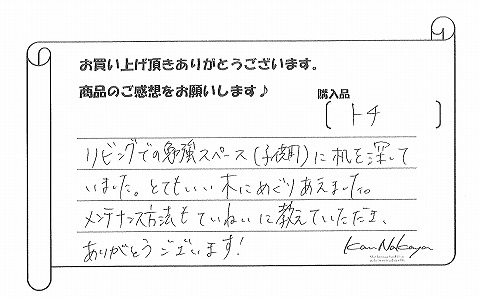 お買い上げ頂きありがとうございます。
商品のご感想をお願いします♪
購入品
[ トチ ]
リビングでの勉強スペース(子供用)に机を探して
いました。とてもいい木にめぐりあえました。
メンテナンス方法もていねいに教えていただき、
ありがとうございます!